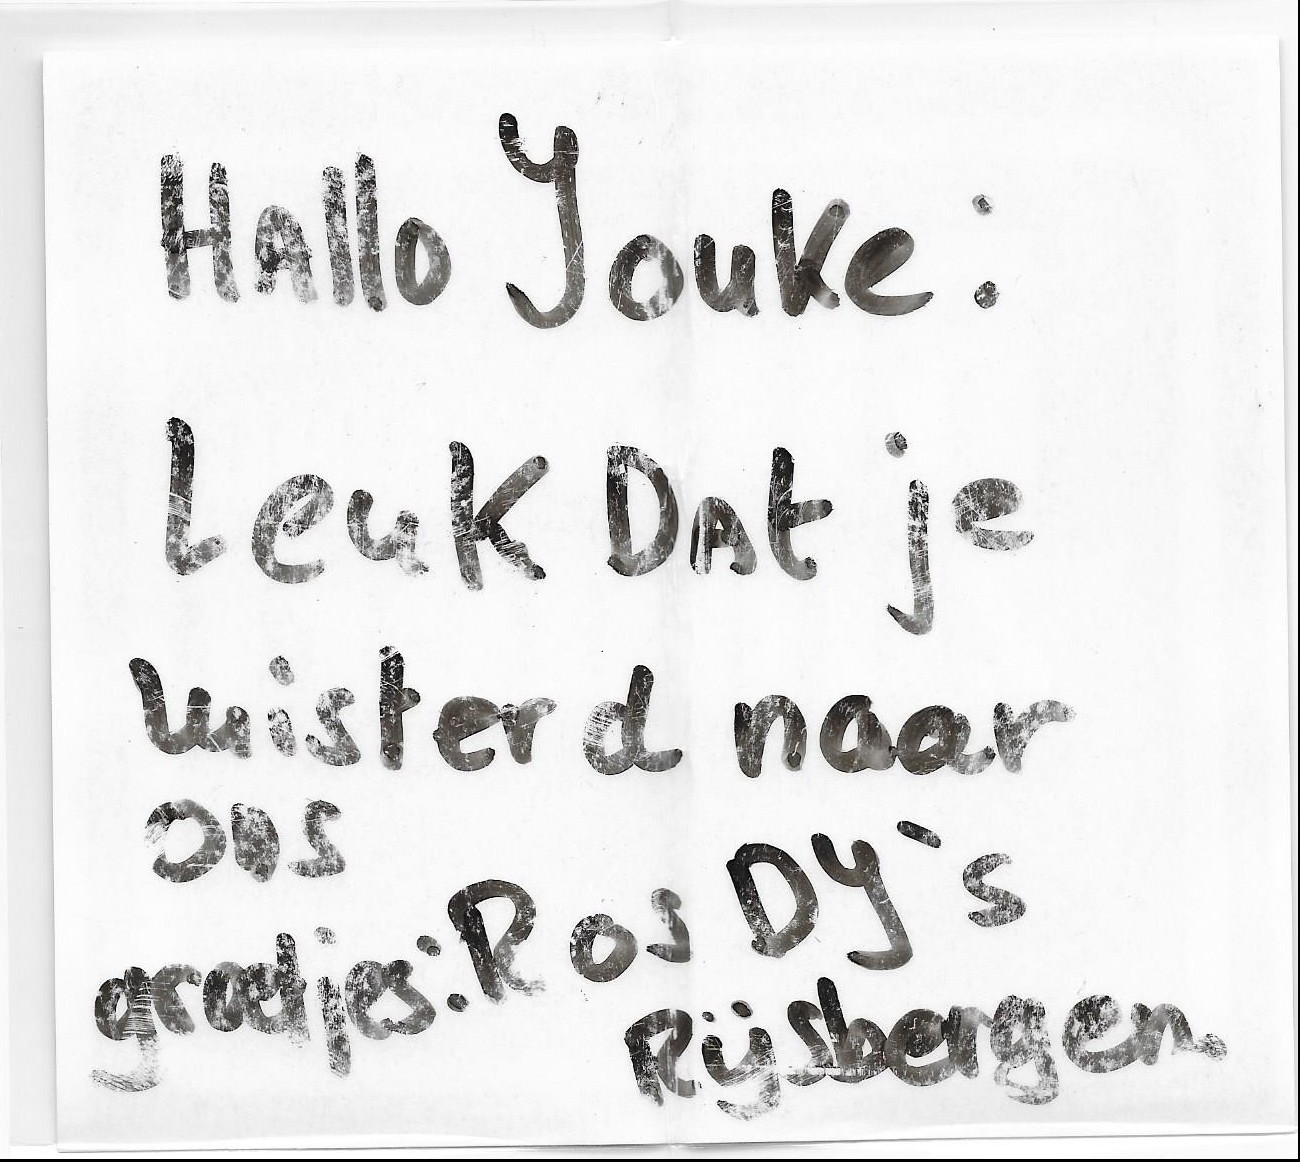 Hallo Jouke:
Leuk Dat je
luisterd naar
ons
groetjes: Ros DY`s
Rijsbergen.